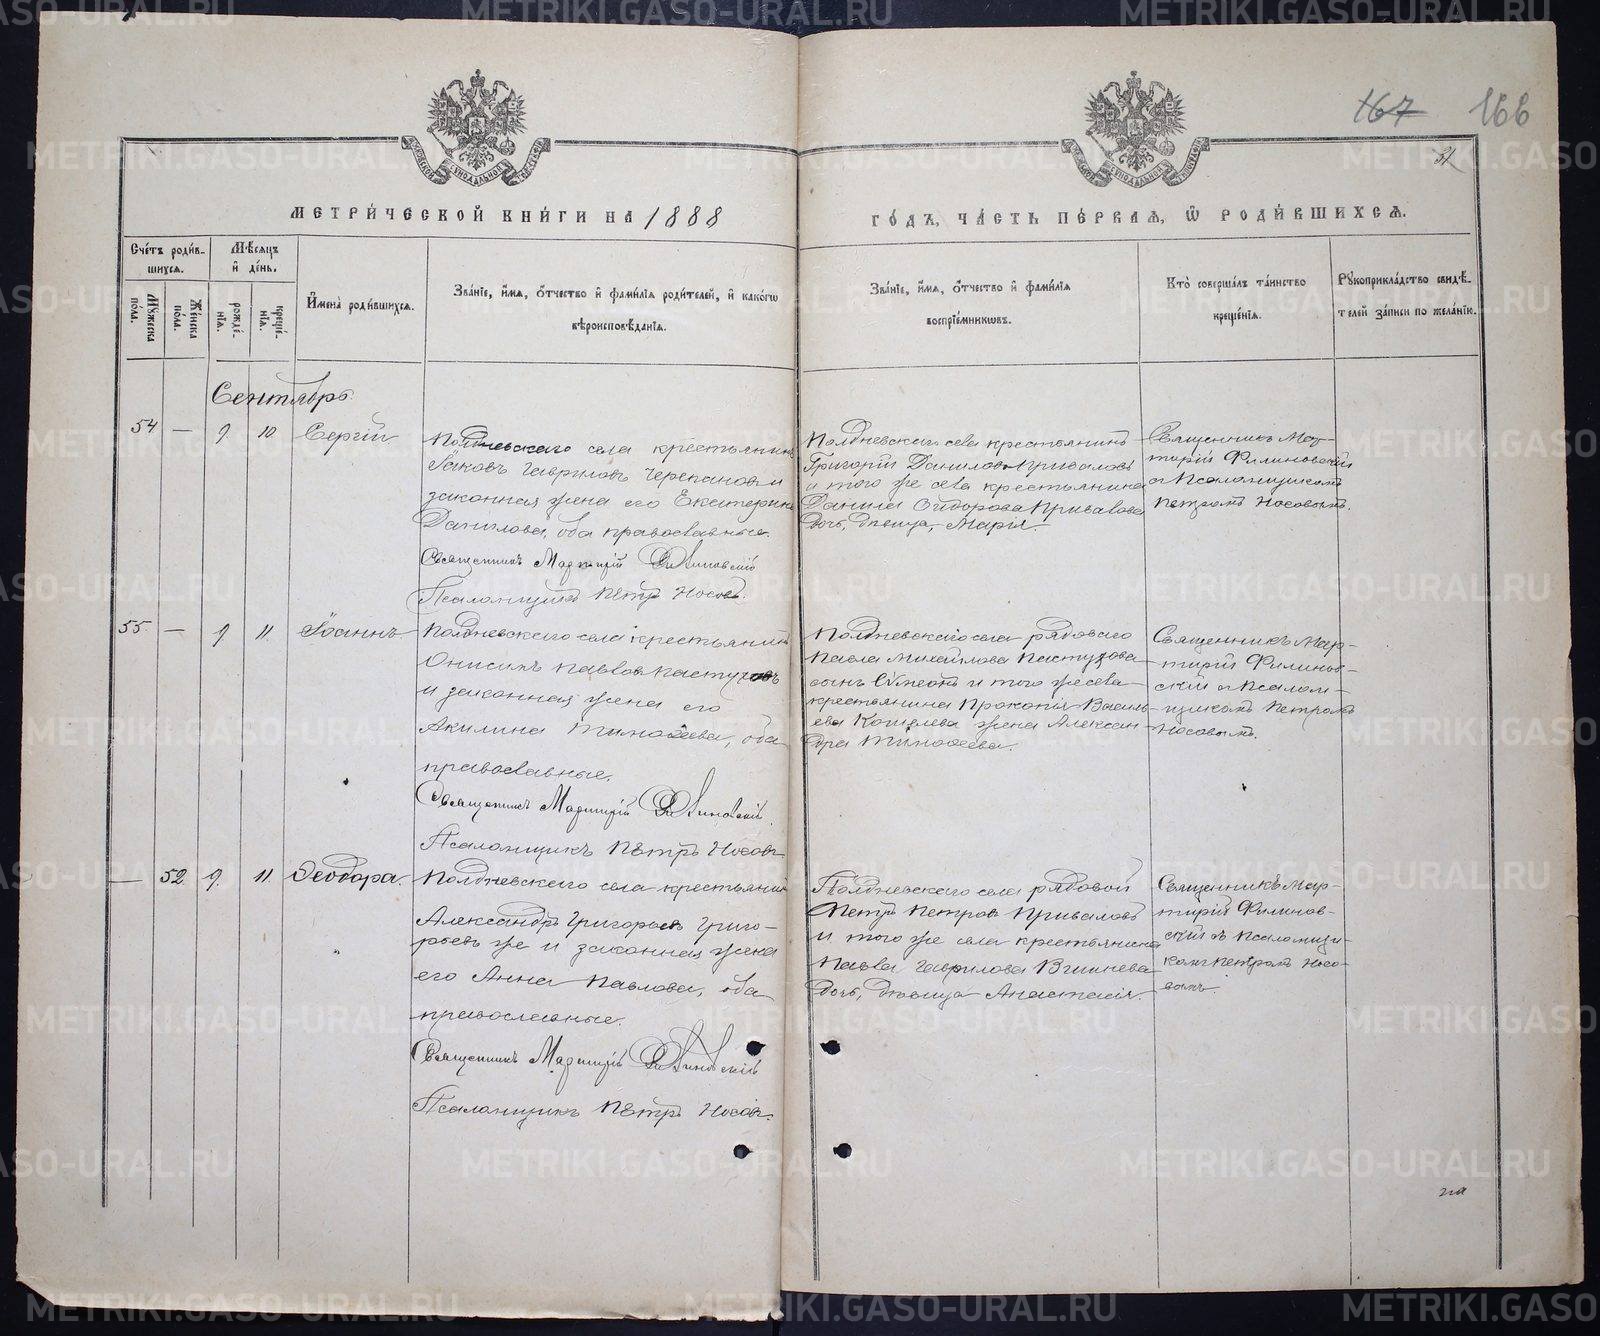 167 166
31
МЕТРИ́ЧЕСКОЙ КНИ́ГИ НА 1888
ГО́ДЪ, ЧА́СТЬ ПЕ́РВАЯ, Ѿ РОДИ́ВШИХСЯ.
Сче́тъ роди́в-
шихся.
Мѣ́сяцъ
и҆ де́нь.
Му́жеска
по́ла.
Же́нска
по́ла.
рожде́-
нїя.
креще́-
нїя.
И҆мена̀ роди́вшихся.
Зва́нїе, и҆́мя, ѻ҆́тчество и҆ фами́лїя роди́телей, и҆ како́гѡ
вѣроисповѣ́данїя.
Зва́нїе, и҆́мя, ѻ҆́тчество и҆ фами́лїя
воспрїе́мникѡвъ.
Кто̀ соверша́лъ та́инство
креще́нїя.
Рꙋкоприкла́дство свидѣ́-
телей за́писи по жела́нїю.
Сентябрь.
54 — 9 10 Сергiй
Полдневскаго села крестьянинъ
Iаковъ Гавриловъ Черепановъ и
законная жена его Екатерина
Данилова, оба православные.
Священникъ Мартирiй Филиновскiй
Псаломщикъ Петръ Носовъ.
Полдневскаго села крестьянинъ
Григорiй Даниловъ Приваловъ
и того же села крестьянина
Данила Сидорова Привалова
дочь, девица, Марiя.
Священникъ Мар-
тирiй Филиновскiй
съ Псаломщикомъ
Петромъ Носовымъ.
55 — 9 11 Iоаннъ
Полдневскаго села крестьянинъ
Онисимъ Павловъ Пастуховъ
и законная жена его
Акилина Тимоѳеева, оба
православные.
Священникъ Мартирiй Филиновскiй.
Псаломщикъ Петръ Носовъ
Полдневскаго села рядоваго
Павла Михайлова Пастухова
сынъ Сѵмеонъ и того же села
крестьянина Прокопiя Василь-
ева Копылева жена Алексан-
дра Тимоѳеева.
Священникъ Мар-
тирiй Филинов-
скiй съ Псалом-
щикомъ Петромъ
Носовымъ.
— 52 9. 11. Ѳеодора.
Полдневскаго села крестьянинъ
Александръ Григорьевъ Григо-
рьевъ же и законная жена
его Анна Павлова, оба
православные.
Священникъ Мартирiй Филиновскiй
Псаломщикъ Петръ Носовъ.
Полдневскаго села рядовой
Петръ Петровъ Приваловъ
и того же села крестьянина
Павла Гаврилова
дочь, девица Анастасiя.
Священникъ Мар-
тирiй Филинов-
скiй съ Псаломщи-
комъ Петромъ Носо-
вымъ.
METRIKI.GASO-URAL.RU